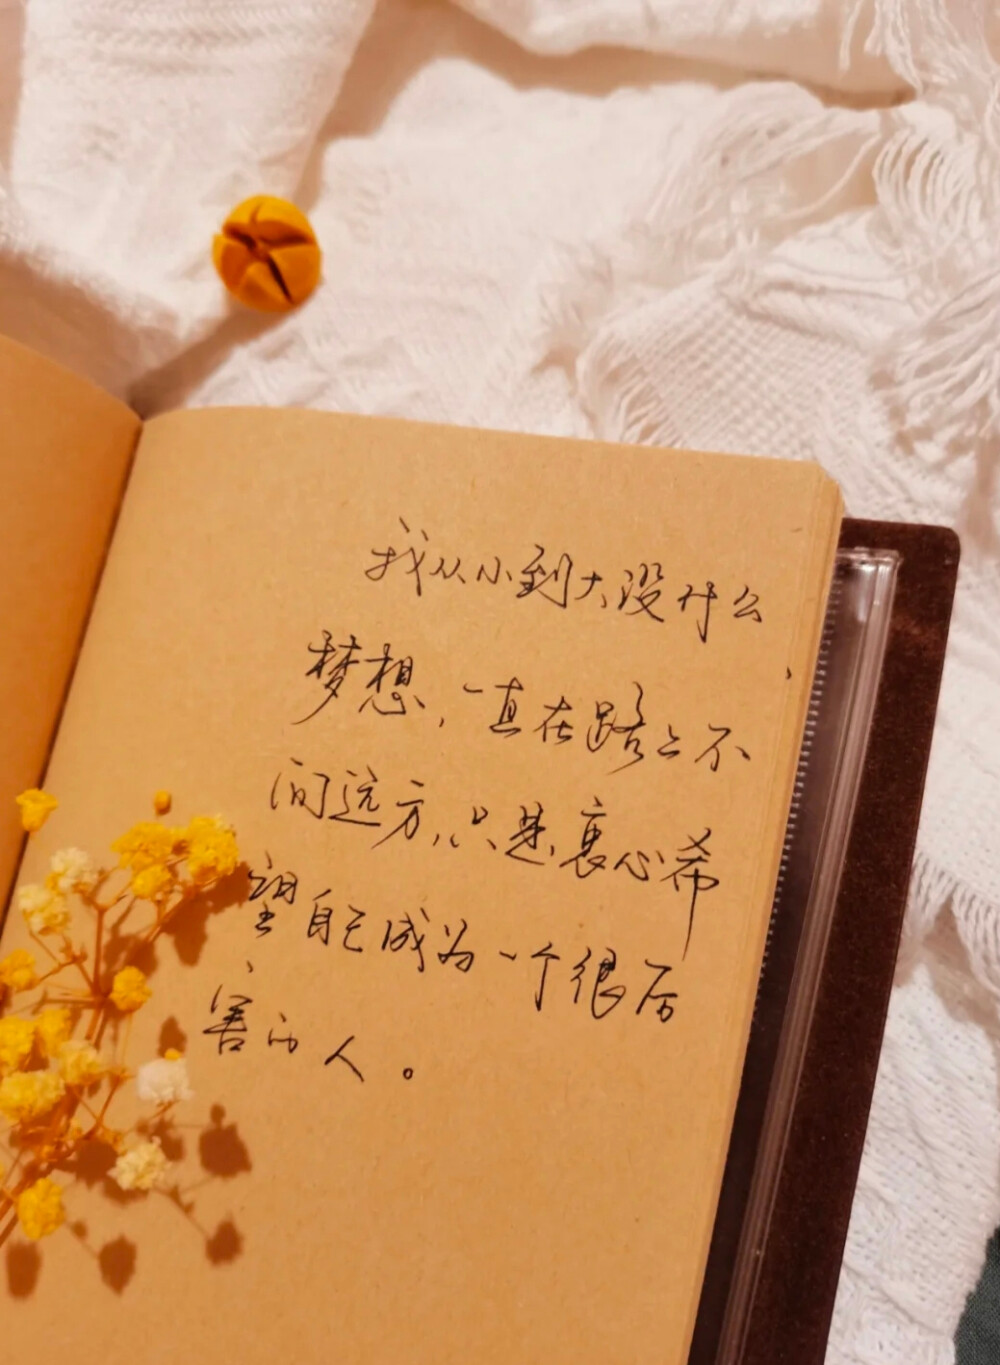 我从小到大没什么
梦想,一直在路上不
问远方,只是衷心希
望自己成为一个很厉
害的人。